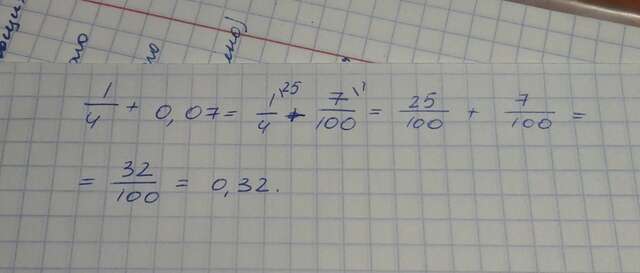 но)
1/4 + 0,07 = 1\25/4 + 7\1/100 = 25/100 + 7/100 =
= 32/100 = 0,32.